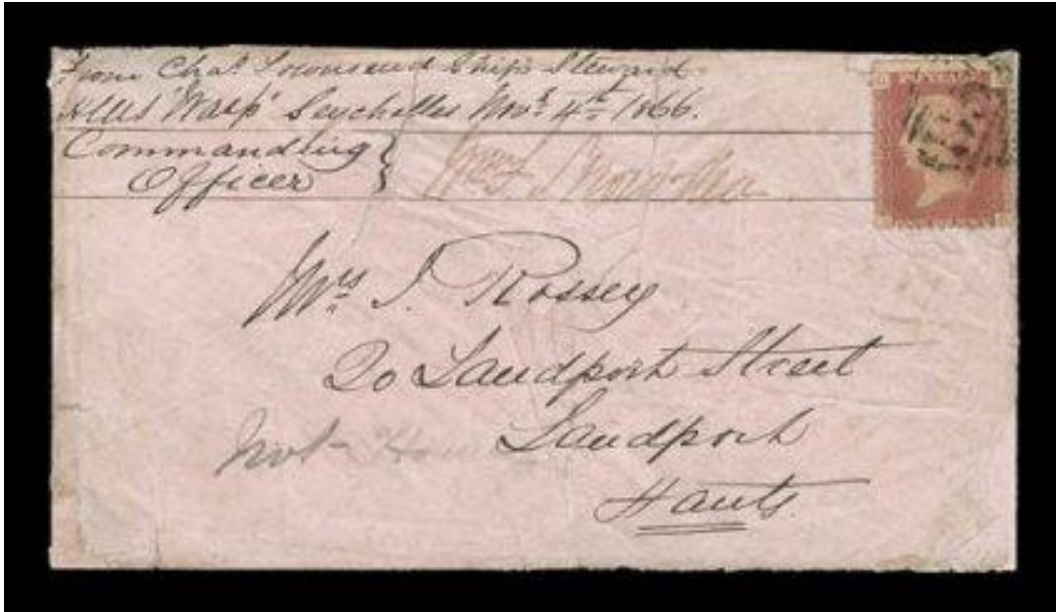 From Chas. Townsend Ship's Steward
HMS 'Wasp' Seychelles Novr. 4th 1866.
Commanding
Officer
Mrs J. Rossey
20 Landport Street
Landport
Hants.
Not